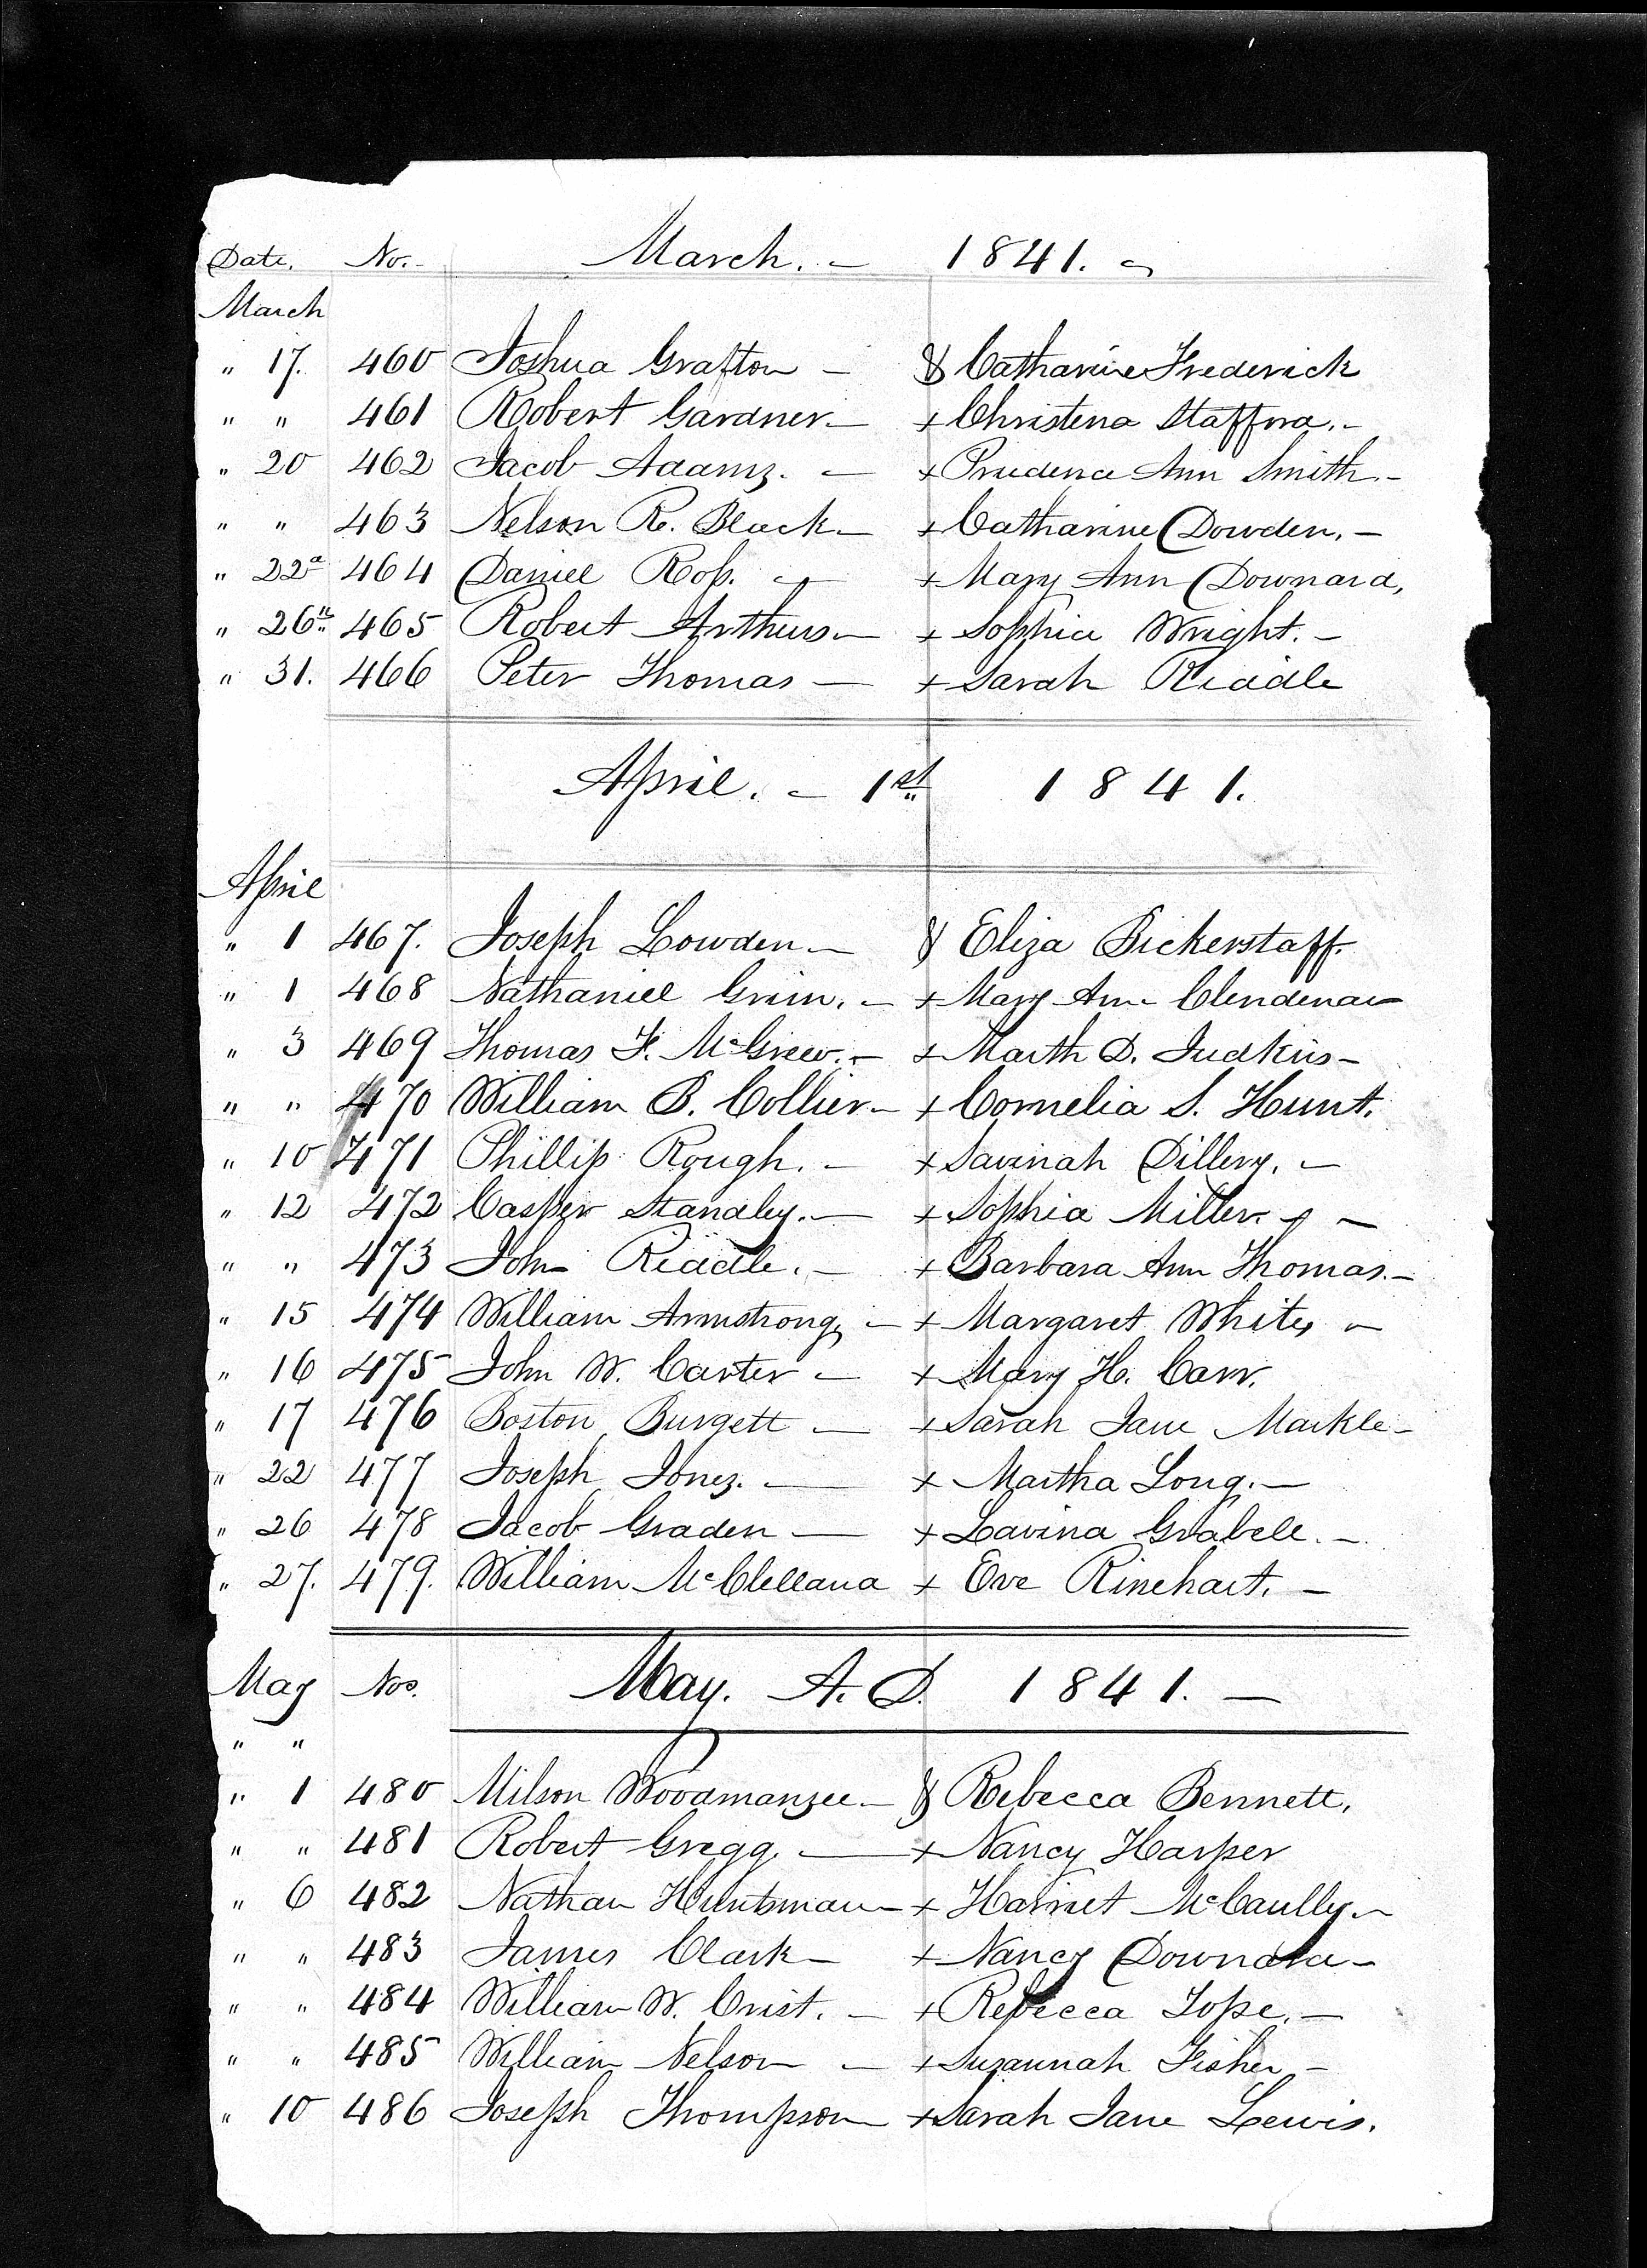 Date. No. March. — 1841. —
March
" 17. 460 Joshua Grafton — & Catharine Frederick
" " 461 Robert Gardner — + Christena Stafford. —
" 20 462 Jacob Adams. — + Prudence Ann Smith. —
" " 463 Nelson R. Black — + Catharine Dowden. —
" 22d 464 Daniel Ross. — + Mary Ann Downard,
" 26th 465 Robert Arthurs — + Sophia Wright. —
" 31. 466 Peter Thomas — + Sarah Riddle
April. — 1st 1841.
April
" 1 467. Joseph Lowden — & Eliza Bickerstaff.
" 1 468 Nathaniel Grim. — + Mary Ann Clendenan
" 3 469 Thomas F. McGrew. — + Marth D. Judkins —
" " 470 William B. Collier — + Cornelia S. Hunt.
" 10 471 Phillip Rough. — + Savinah Dillery. —
" 12 472 Casper Standley. — + Sophia Miller —
" " 473 John Riddle. — + Barbara Ann Thomas. —
" 15 474 William Armstrong, — + Margaret White, —
" 16 475 John W. Carter — + Mary H. Carr.
" 17 476 Boston Burgett — + Sarah Jane Markle —
" 22 477 Joseph Jones. — + Martha Long. —
" 26 478 Jacob Graden — + Lavina Grabell. —
" 27. 479. William McClelland + Eve Rinehart. —
May Nos. May. A. D. 1841. —
" "
" 1 480 Milson Woodmanzee — & Rebecca Bennett,
" " 481 Robert Gregg — + Nancy Harper
" 6 482 Nathan Huntsman — + Harriet McCaully —
" " 483 James Clark — + Nancy Downard —
" " 484 William W. Crist. — + Rebecca Tope. —
" " 485 William Nelson — + Suzannah Fisher —
" 10 486 Joseph Thompson — + Sarah Jane Lewis.